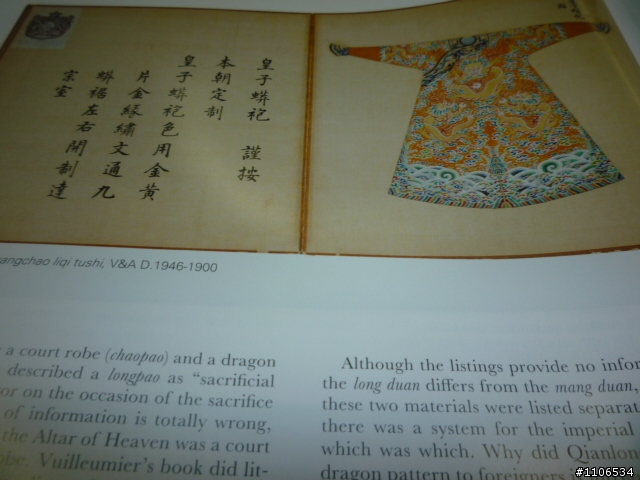 皇子蟒袍 謹按
本朝定制
皇子蟒袍色用金黃
片金緣繡文通九
蟒裾左右開制達
宗室
angchao liqi tushi, V&A D.1946-1900
a court robe (chaopao) and a dragon
described a longpao as “sacrificial
or on the occasion of the sacrifice
of information is totally wrong,
the Altar of Heaven was a court
Vuilleumier's book did lit-
Although the listings provide no infor
the long duan differs from the mang duan,
these two materials were listed separat
there was a system for the imperial
which was which. Why did Qianlon
dragon pattern to foreigners
#1106534